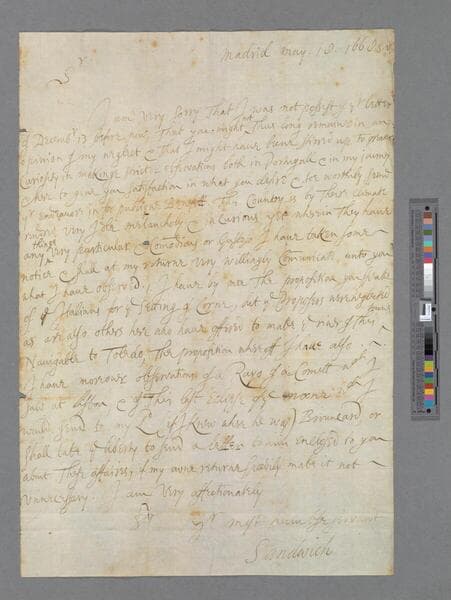 Madrid May. 18. 1668 s.n.
Sr
I am very sorry That I was not possest of yr letter
of Decembr 13 before now, That you might not Thus long remaine in an
opinion of my neglect & That I might have beene stirred up to
Curiosity in makinge observations both in Portugall & in my Jurny
here to give you satisfaction in what you desire & soe worthily spend
yr endeavors in for publicke This Country is by Theire climate
rendred very Idle melancholy & in Curious yett wherein They have
any things very particular & Comodious or I have taken some
notice & shall at my returne very willingly Comunicate unto you
what I have observed, I have by me The proposition you speake
of Italians for ye Setting of Corne, but ye Progresses were neglected
as are also others here who have offred to make ye river of This
Navigable to Toledo The proposition whereof I have also
I have moreover observations of a Rayo of a Comett wch I
saw at & of This last Eclipse of ye moone wch I
would send to my Ld (if I knew where he was) Brouncard or
shall take ye liberty to send a letter to him enclosed to you
about These affaires, if my owne returne speedily make it not
unnecessary. I am very affectionately
Sr
yr most humble servant
Sandwich